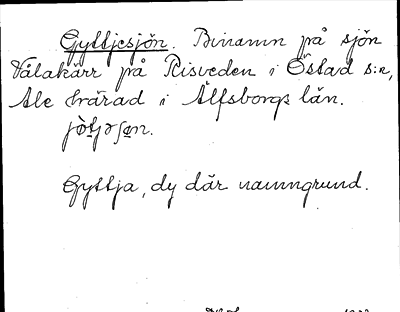 Gyttjesjön. Binamn på sjön
Vålakärr på Risveden i Östad s:n,
Ale härad i Älfsborgs län.
Gyttja, dy där namngrund.